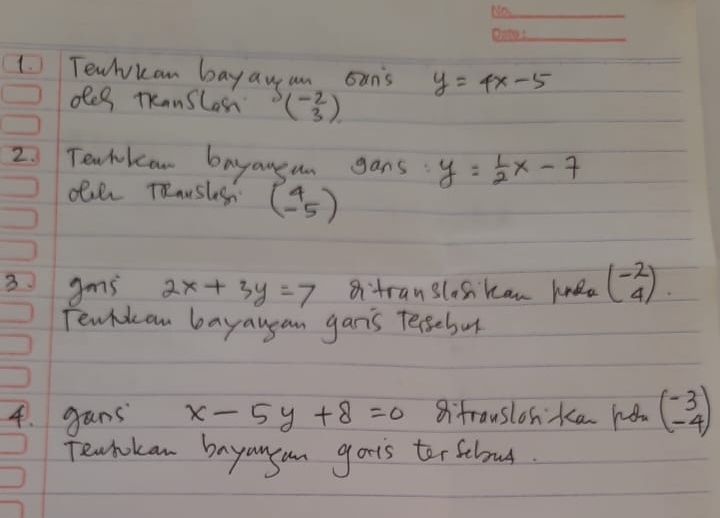 No.
Date:
1. Tentukan bayangan garis y = 4x - 5
oleh translasi (-2 3).
2. Tentukan bayangan garis : y = 1/2 x - 7
oleh Translasi (4 -5)
3. garis 2x + 3y = 7 ditranslasikan pada (-2 4).
Tentukan bayangan garis tersebut
4. garis x - 5y + 8 = 0 ditranslasikan pda (-3 -4)
Tentukan bayangan garis tersebut.